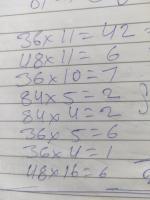 36x11=42
48x11=6
36x10=7
84x5=2
84x4=2
36x5=6
36x4=1
48x16=6